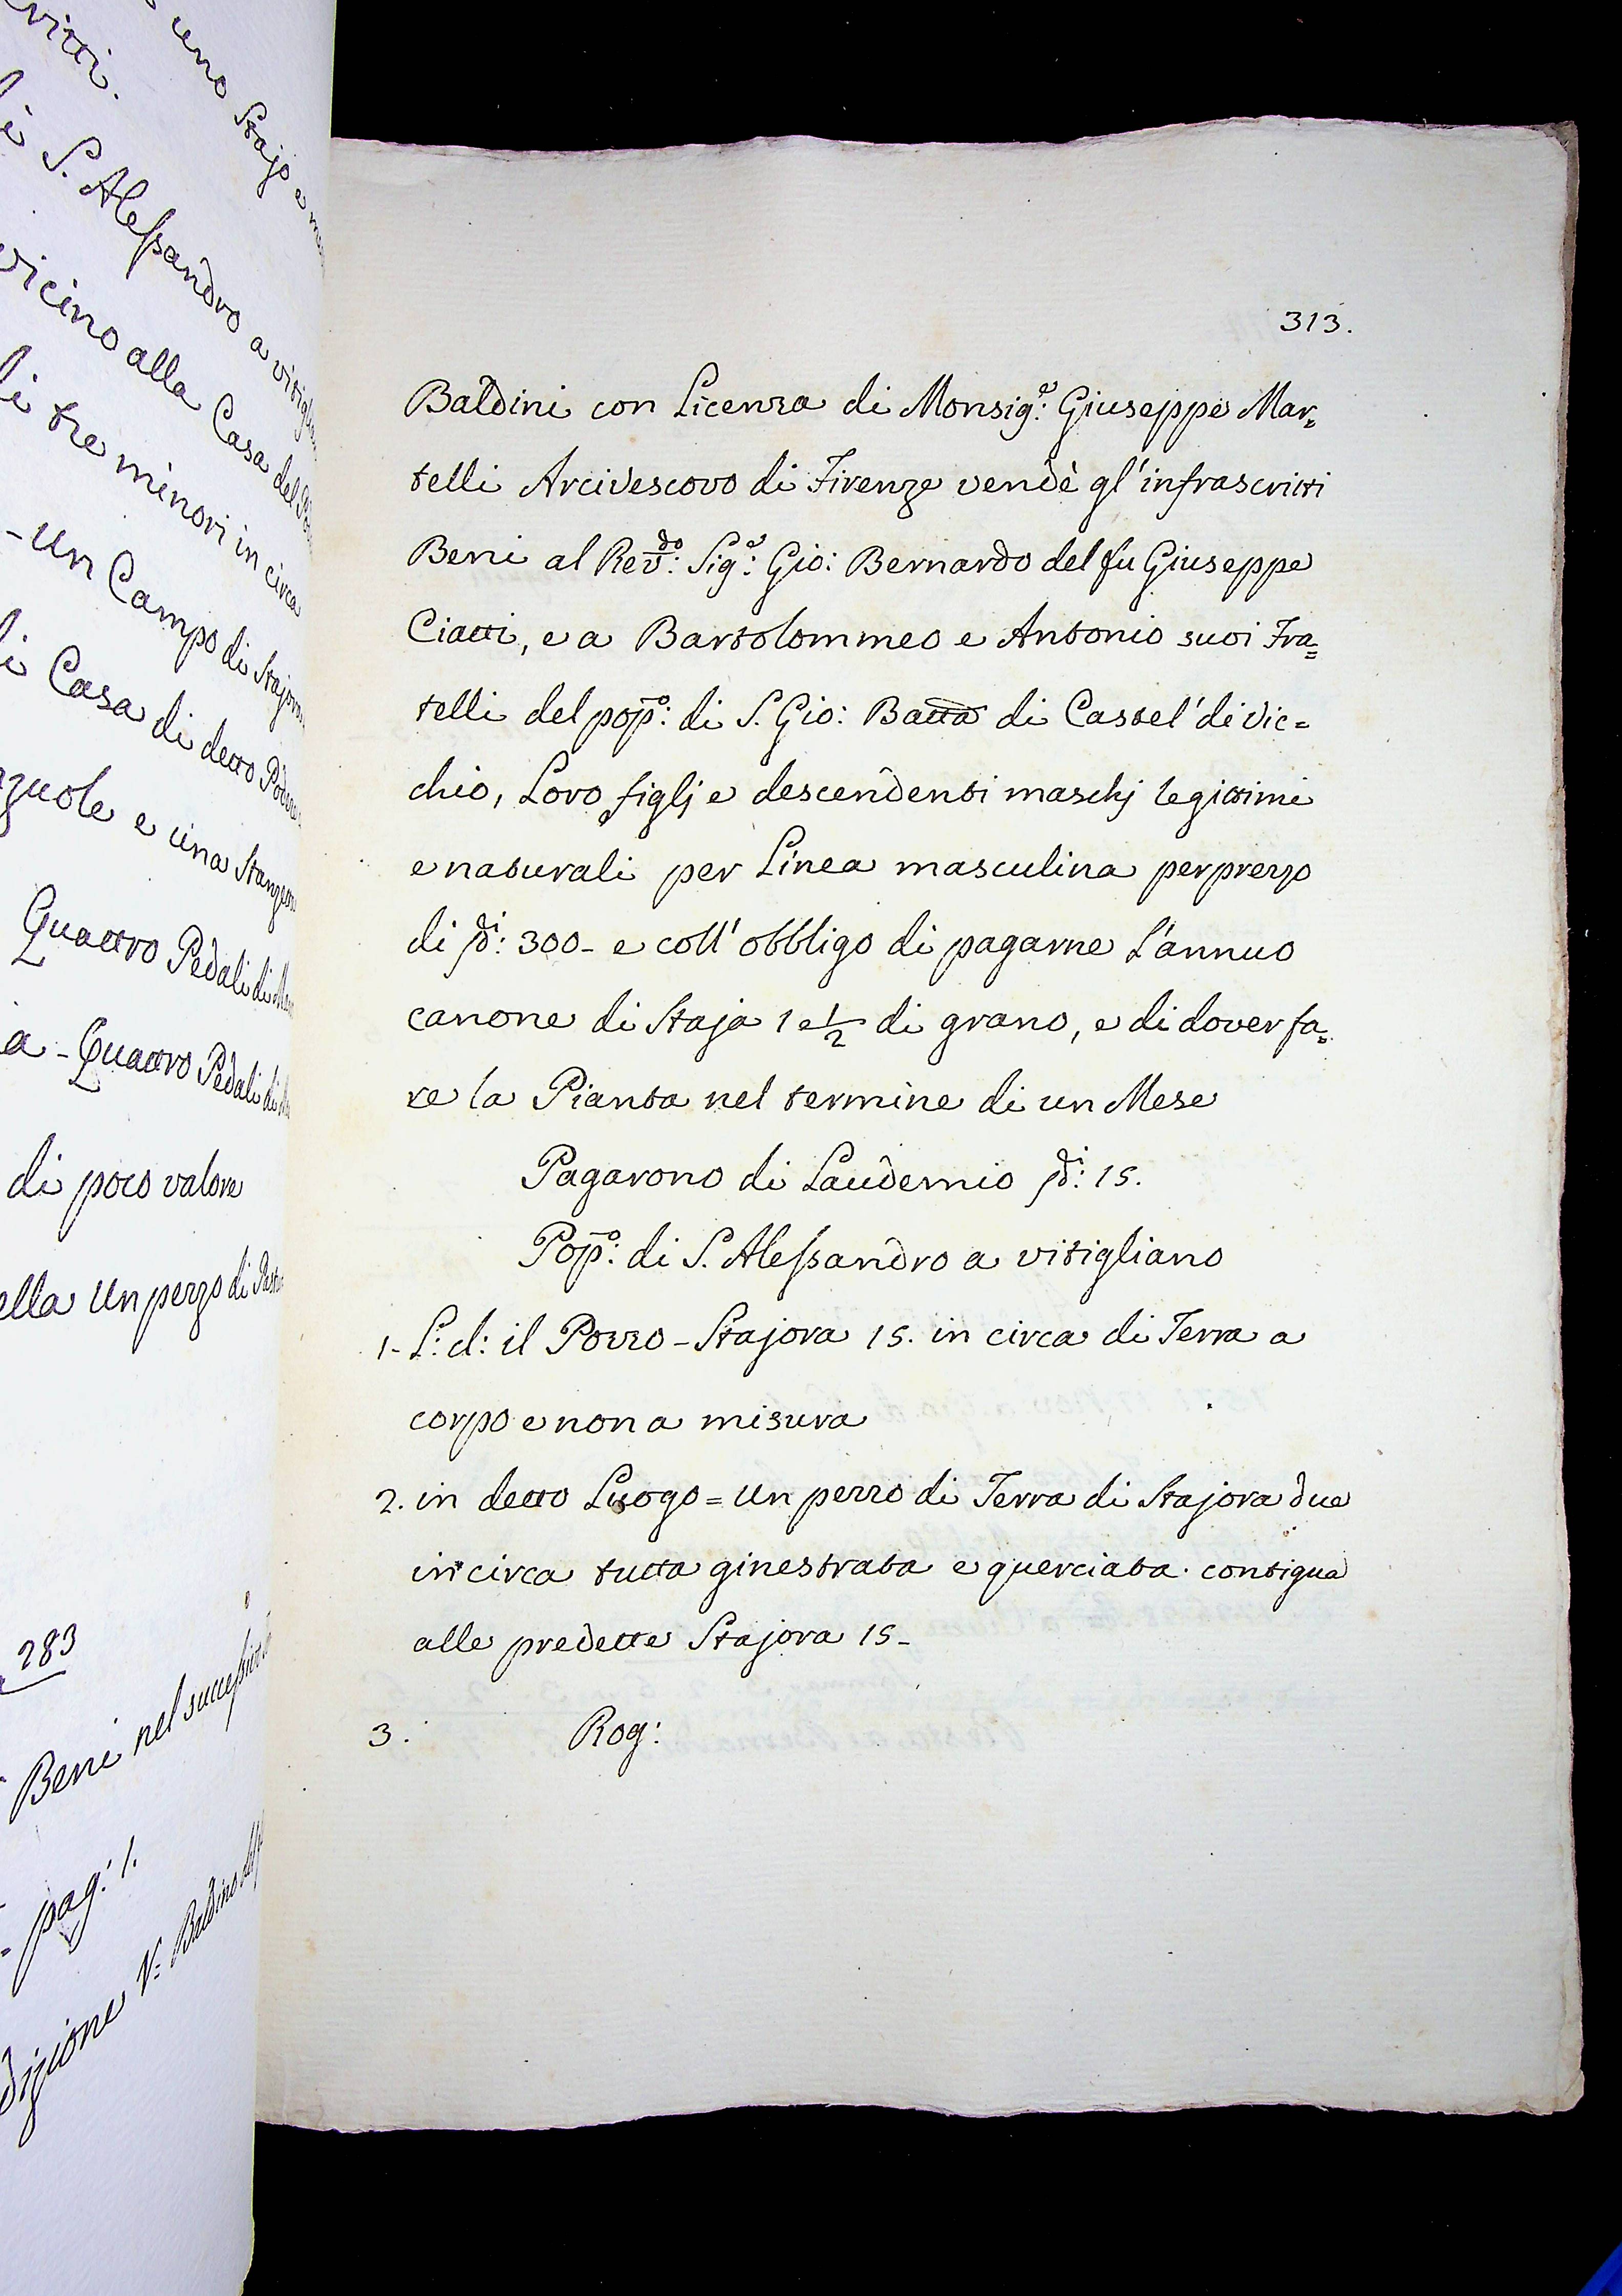 vitti.
uno Stajo e
di S. Alessandro a vitigli
vicino alla Casa del
di tre minori in circa
- Un Campo di Stajora
di Casa di detto Podere
zuole e una Stanzetta
Quattro Pedali di
a - Quattro Pedali di
di poco valore
ella Un pezzo di
283
Beni nel successivo
pag: 1.
dizione N: Baldino
313.
Baldini con Licenza di Monsig.e: Giuseppe Mar=
telli Arcivescovo di Firenze vendè gl'infrascritti
Beni al Rev.do: Sig.e: Gio: Bernardo del fu Giuseppe
Ciatti, e a Bartolommeo e Antonio suoi Fra=
telli del pop.o: di S. Gio: Batta di Castel' di Vic=
chio, Loro figlj e descendenti maschj legittimi
e naturali per Linea masculina per prezzo
di ∫di: 300- e coll' obbligo di pagarne L'annuo
canone di Staja 1 e 1/2 di grano, e di dover fa=
re la Pianta nel termine di un Mese
Pagarono di Laudemio ∫di: 15.
Pop.o: di S. Alessandro a vitigliano
1- L: d: il Pozzo - Stajora 15. in circa di Terra a
corpo e non a misura
2. in detto Luogo = Un pezzo di Terra di Stajora due
in circa tutta ginestrata e querciata. contigua
alle predette Stajora 15-
3. Rog: